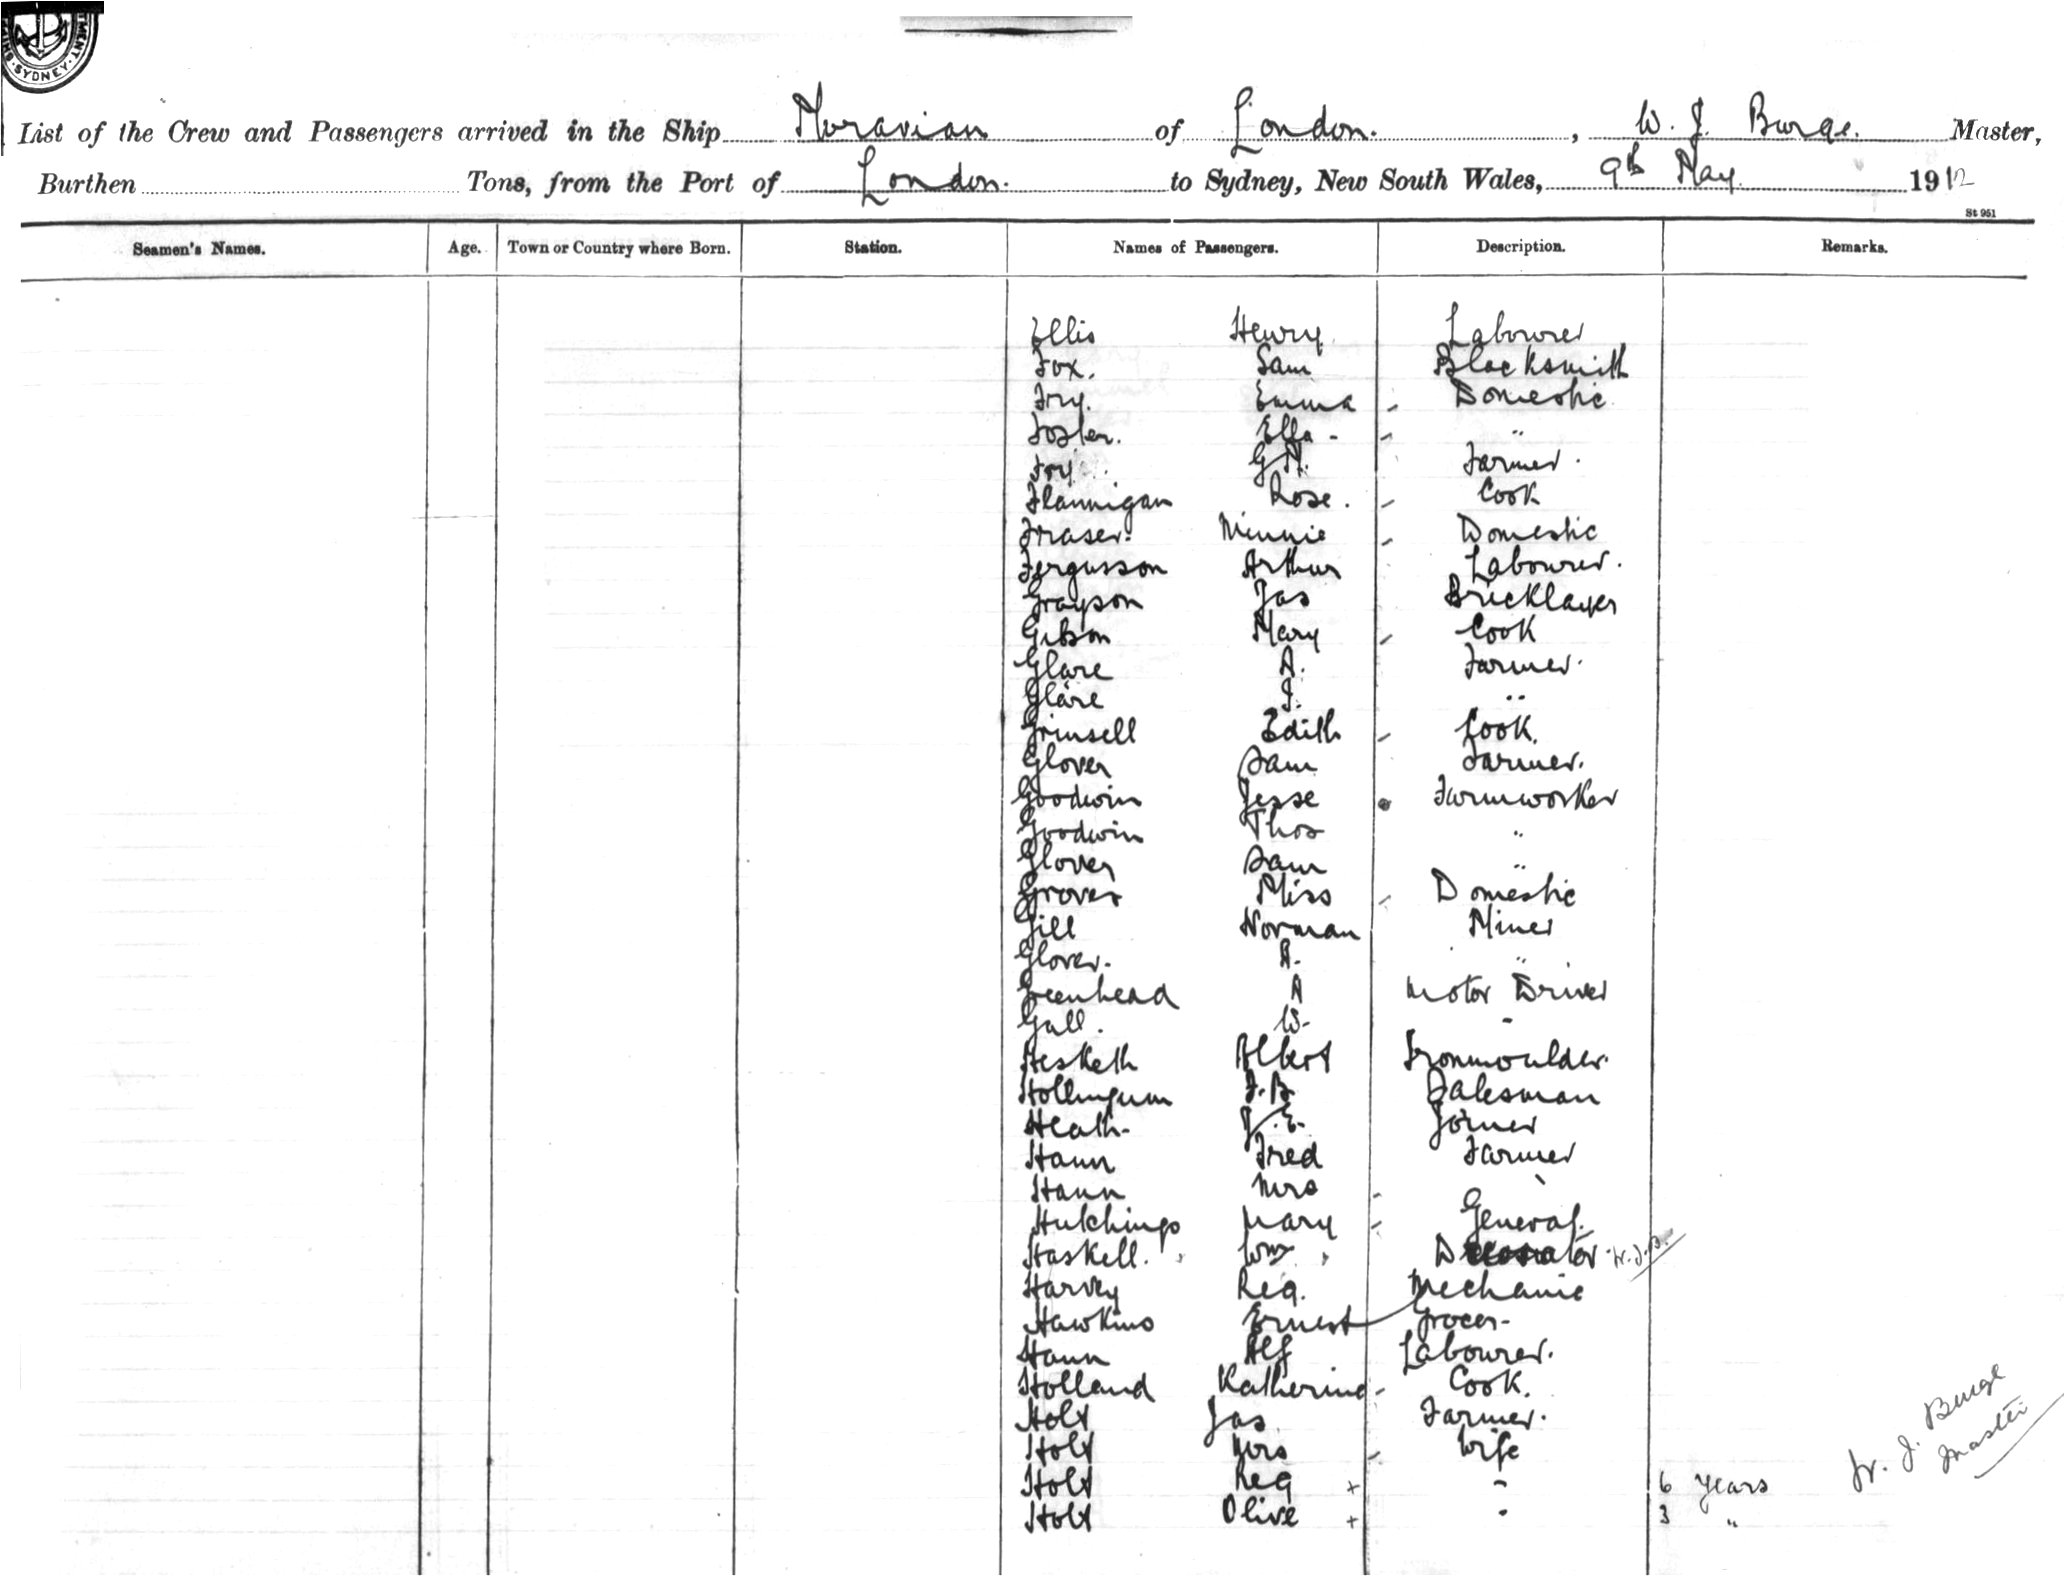 SYDNEY
List of the Crew and Passengers arrived in the Ship Moravian of London. , W. J. Burge. Master,
Burthen Tons, from the Port of London. to Sydney, New South Wales, 9th May 1912
St 951
Seamen's Names. Age. Town or Country where Born. Station. Names of Passengers. Description. Remarks.
Ellis Henry Labourer
Fox. Sam Blacksmith
Fry. Emma Domestic
Foster. Ella - "
Foy G H. Farmer.
Flannigan Rose. Cook
Fraser. Minnie Domestic
Fergusson Arthur Labourer.
Grayson Jas Bricklayer
Gibson Mary Cook
Glare A. Farmer.
Glare J. "
Grinsell Edith Cook.
Glover Sam Farmer.
Goodwin Jesse Farmworker
Goodwin Thos "
Glover Sam "
Grover Miss Domestic
Gill Norman Miner
Glover. A. "
Greenhead A Motor Driver
Gall. W. -
Hesketh Albert Ironmoulder.
Hollingum F. B Salesman
Heath - J. E. Joiner
Hann Fred Farmer
Hann Mrs
Hutchings Mary General.
Haskell. Wm Decorator W.J.B.
Harvey Reg. Mechanic
Hawkins Ernest Grocer -
Hann Alf Labourer.
Holland Katherine Cook.
Holt Jas. Farmer.
Holt Mrs Wife
Holt Reg + - 6 years
Holt Olive + " 3 "
W. J. Burge
Master